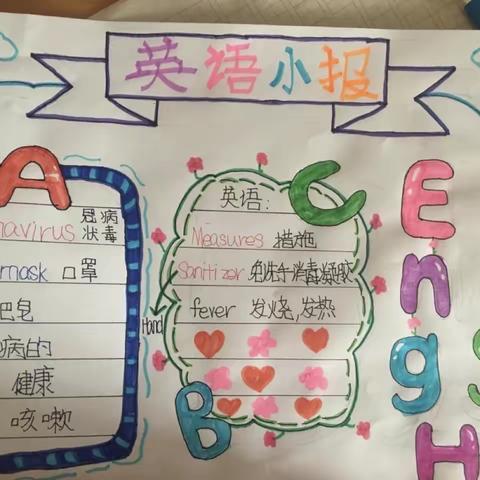 英语小报
A
navirus 冠病
状毒
mask 口罩
皂
病的
健康
咳嗽
C
英语:
Measures 措施
Hand
Sanitizor 免洗手消毒凝胶
fever 发烧,发热
B
E
n
g
H